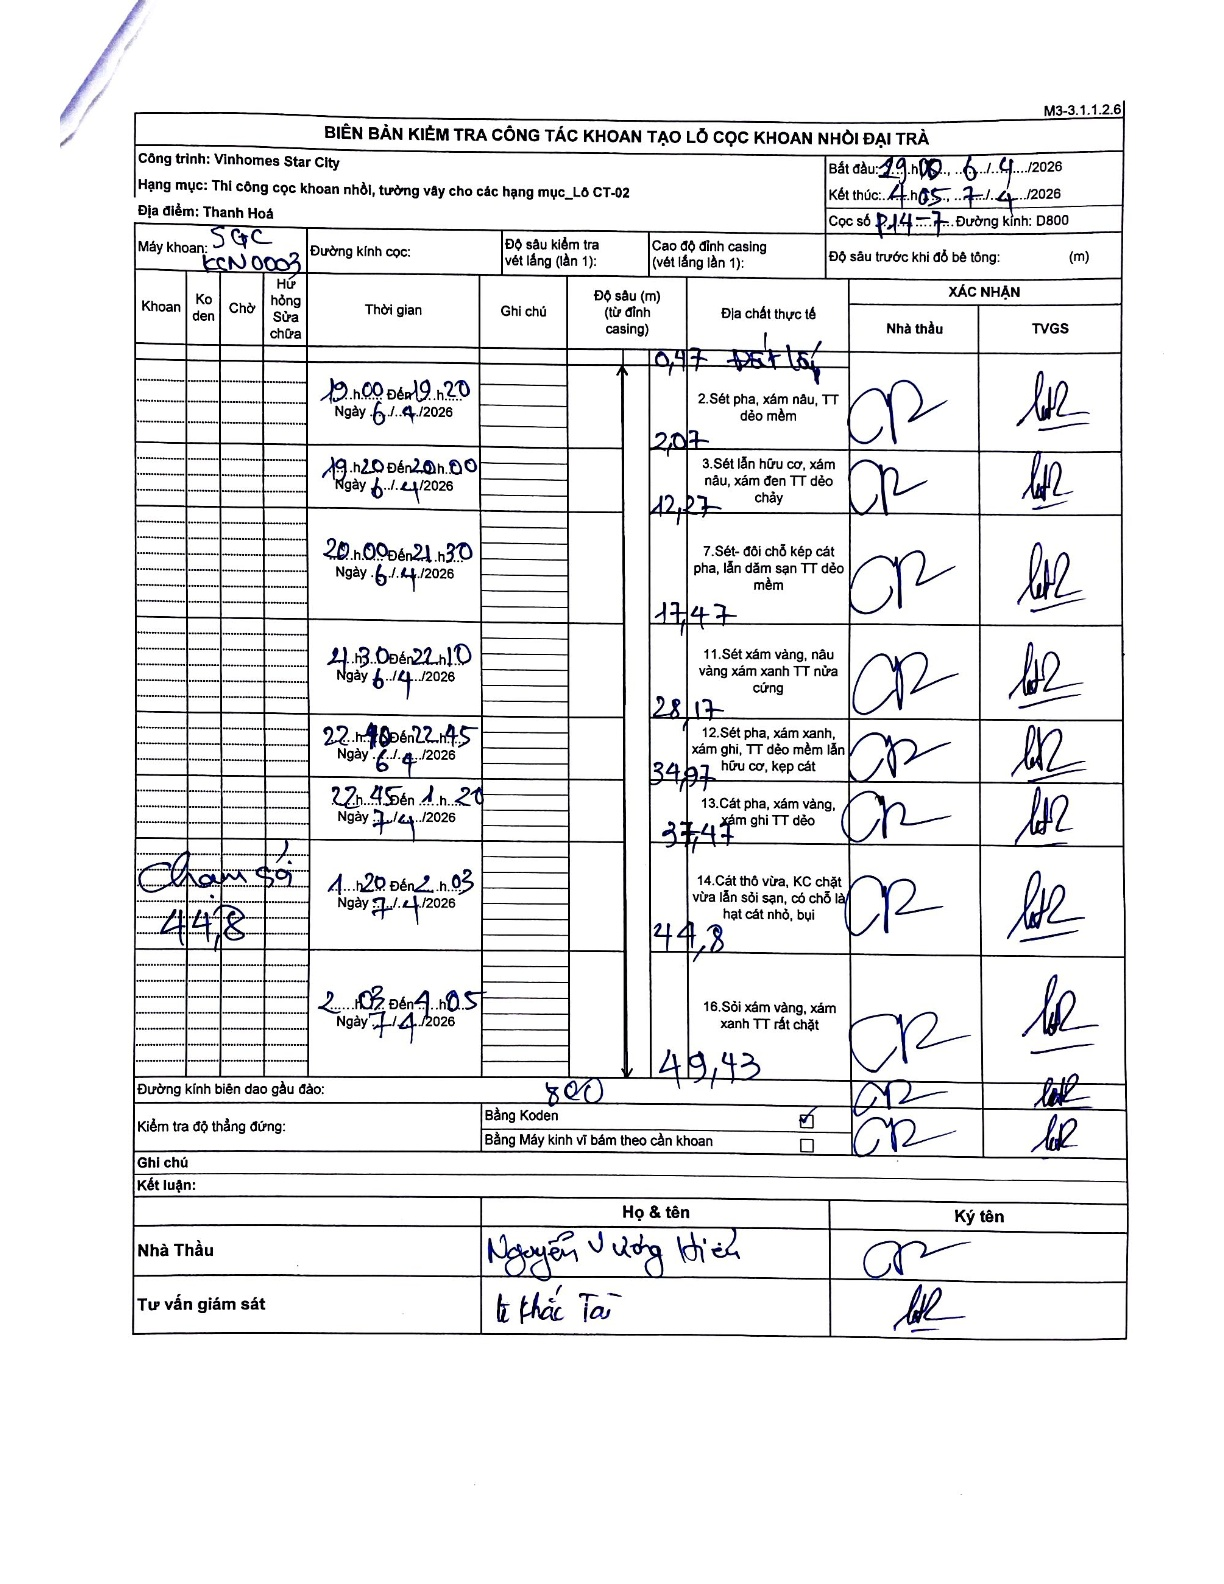 M3-3.1.1.2.6
BIÊN BẢN KIỂM TRA CÔNG TÁC KHOAN TẠO LỖ CỌC KHOAN NHỒI ĐẠI TRÀ
Công trình: Vinhomes Star City
Hạng mục: Thi công cọc khoan nhồi, tường vây cho các hạng mục_Lô CT-02
Địa điểm: Thanh Hoá
Bắt đầu: 19.h00., ..6../..4..../2026
Kết thúc: 4.h05., ..7../.4.../2026
Cọc số P14-7. Đường kính: D800
Máy khoan: SGC
KCN0003
Đường kính cọc:
Độ sâu kiểm tra
vét lắng (lần 1):
Cao độ đỉnh casing
(vét lắng lần 1):
Độ sâu trước khi đổ bê tông: (m)
Khoan
Ko
den
Chờ
Hư
hỏng
Sửa
chữa
Thời gian
Ghi chú
Độ sâu (m)
(từ đỉnh
casing)
Địa chất thực tế
XÁC NHẬN
Nhà thầu
TVGS
0,47 Đất lấp
19.h00 Đến 19.h.20
Ngày .6./..4../2026
2.Sét pha, xám nâu, TT
dẻo mềm
2,07
19.h20 Đến 20h.00
Ngày 6../..4/2026
3.Sét lẫn hữu cơ, xám
nâu, xám đen TT dẻo
chảy
12,27
20.h.00 Đến 21.h30
Ngày .6./.4./2026
7.Sét- đôi chỗ kép cát
pha, lẫn dăm sạn TT dẻo
mềm
17,47
21..h30 Đến 22.h10
Ngày 6../4../2026
11.Sét xám vàng, nâu
vàng xám xanh TT nửa
cứng
28,17
22..h.10 Đến 22.h45
Ngày .6./.4../2026
12.Sét pha, xám xanh,
xám ghi, TT dẻo mềm lẫn
hữu cơ, kẹp cát
34,97
22.h..45 Đến 1.h.20
Ngày 7./4../2026
13.Cát pha, xám vàng,
xám ghi TT dẻo
37,47
Chạm sỏi
44,8
1...h20 Đến 2.h.03
Ngày 7./.4./2026
14.Cát thô vừa, KC chặt
vừa lẫn sỏi sạn, có chỗ là
hạt cát nhỏ, bụi
44,8
2.....h03 Đến 4..h05
Ngày 7./4./2026
16.Sỏi xám vàng, xám
xanh TT rất chặt
49,43
Đường kính biên dao gầu đào: 800
Kiểm tra độ thẳng đứng:
Bằng Koden
Bằng Máy kinh vĩ bám theo cần khoan
Ghi chú
Kết luận:
Họ & tên
Ký tên
Nhà Thầu
Nguyễn Vương Hiển
Tư vấn giám sát
Lê Khắc Tài